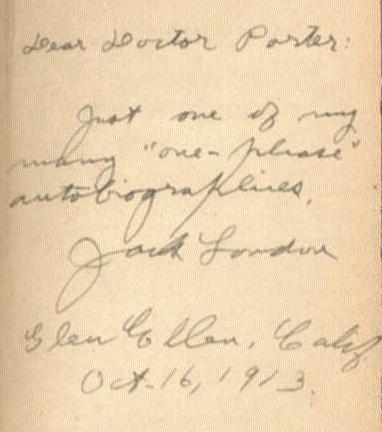 Dear Doctor Porter:
Just one of my
many "one-phase"
autobiographies.
Jack London
Glen Ellen, Calif
Oct. 16, 1913.